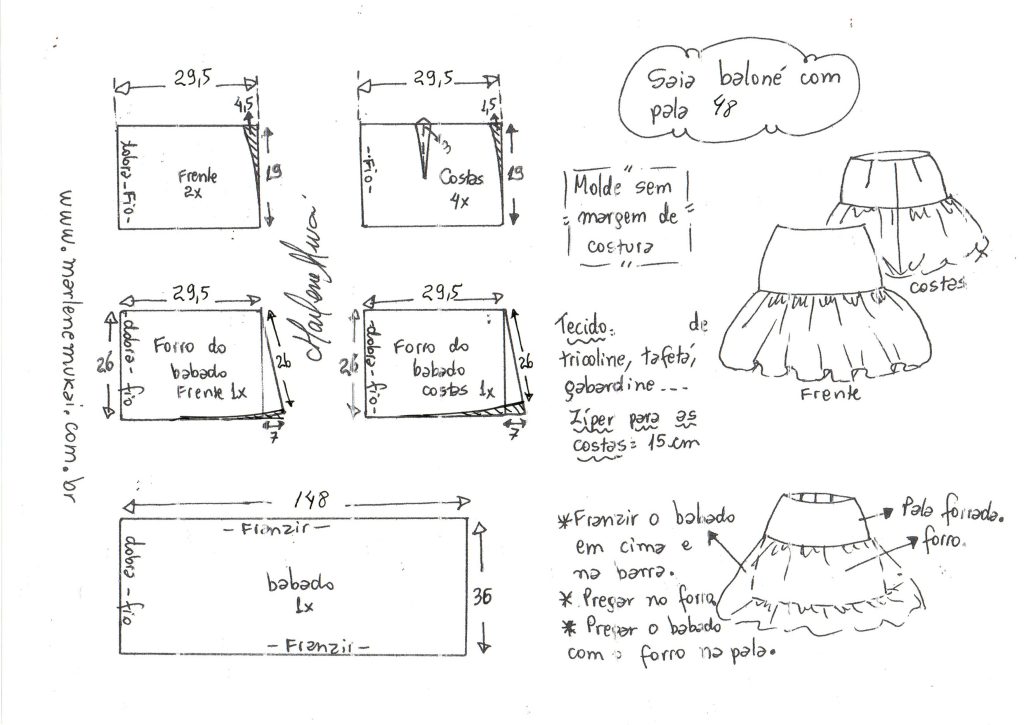 Saia baloné com
pala 48
29,5
4,5
19
dobra-Fio-
Frente
2x
29,5
1,5
3
-Fio-
Costas
4x
19
Molde sem
margem de
costura
costas
Frente
www.marlenemukai.com.br
29,5
26
dobra-fio
Forro do
babado
Frente 1x
26
7
29,5
26
dobra-fio-
Forro do
babado
costas 1x
26
7
Tecido: de
tricoline, tafetá,
gabardine...
Zíper para as
costas = 15 cm
148
-Franzir-
dobra-fio
babado
1x
36
-Franzir-
*Franzir o babado
em cima e
na barra.
* Pregar no forro
* Pregar o babado
com o forro na pala.
Pala forrada.
forro.